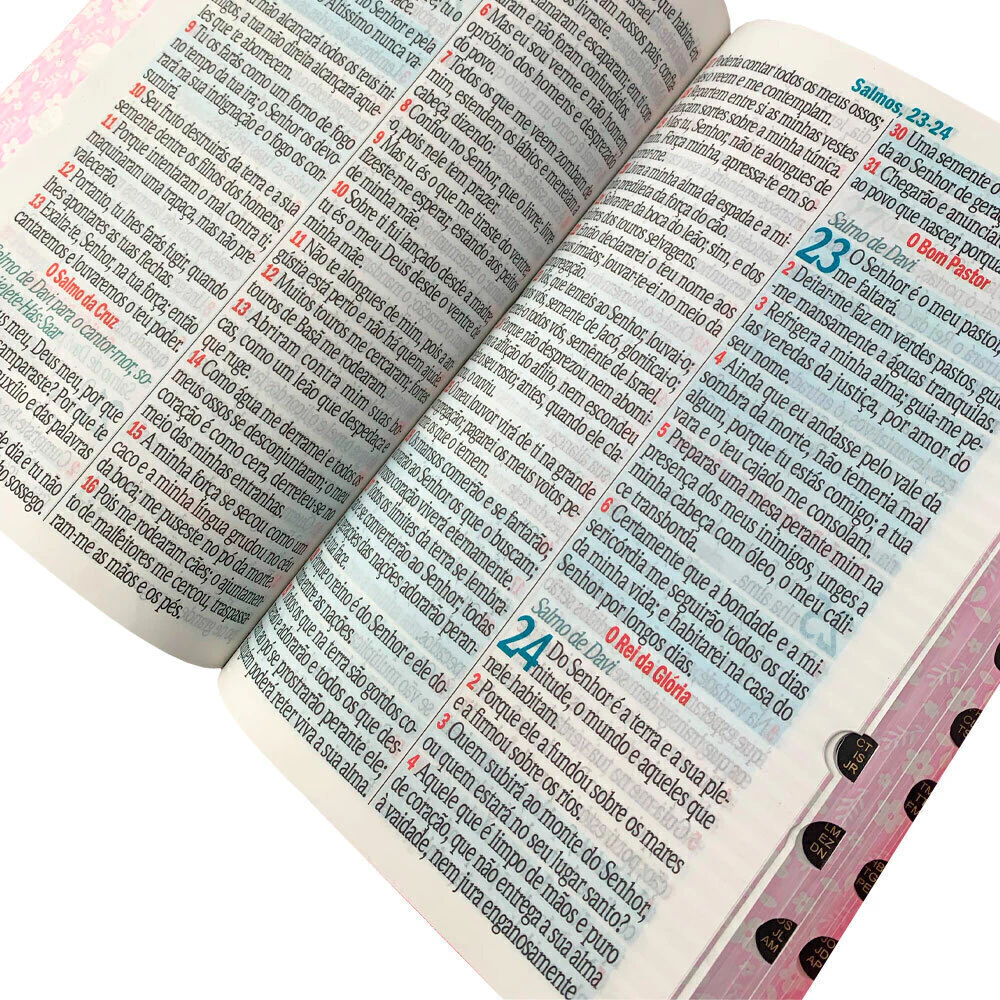 9 Tu os farás como um forno de fogo
no tempo da tua ira; o Senhor os devo-
rará na sua indignação, e o fogo os con-
sumirá.
10 Seu fruto destruirás da terra e a sua
semente dentre os filhos dos homens.
11 Porque intentaram o mal contra ti;
maquinaram uma trapaça, mas não pre-
valecerão.
12 Portanto, tu lhes farás fugir, quando
lhes apontares as tuas flechas.
13 Exalta-te, Senhor, na tua força; então
cantaremos e louvaremos o teu poder
O Salmo da Cruz
almo de Davi para o cantor-mor, so-
us meu, Deus meu, por que
amparaste? Por que te
auxílio e das palavras
de dia, e tu não
sossego.
6 Mas eu sou verme, e não homem,
opróbrio dos homens e desprezado
do povo.
7 Todos os que me veem zombam de
mim, estendem os lábios e meneiam a
cabeça, dizendo:
8 Confiou no Senhor, que o livre; livre-
o, pois nele tem prazer.
9 Mas tu és o que me tiraste do ventre;
fizeste-me esperar, estando aos peitos
de minha mãe.
10 Sobre ti fui lançado desde a madre;
tu és o meu Deus desde o ventre de
minha mãe.
11 Não te alongues de mim, pois a an-
gústia está perto, e não há quem ajude.
12 Muitos touros me cercaram; fortes
touros de Basã me rodearam.
13 Abriram contra mim suas bo-
cas, como um leão que despedaça e
que ruge.
14 Como água me derramei, e todos os
meus ossos se desconjuntaram; o meu
coração é como cera, derreteu-se no
meio das minhas entranhas.
15 A minha força se secou como um
caco, e a minha língua grudou no céu
da boca; me puseste no pó da morte.
16 Pois me rodearam cães; o ajuntamen-
to de malfeitores me cercou, traspassa-
ram-me as mãos e os pés.
Poderia contar todos os meus ossos;
Repartem entre si as minhas vestes
e lançam sortes sobre a minha túnica.
Mas tu, Senhor, não te alongues de
força minha, apressa-te em so-
a minha alma da espada, e a mi-
predileta da força do cão.
-me da boca do leão; sim, e dos
dos touros selvagens.
declararei o teu nome aos
irmãos; louvar-te-ei no meio da
congregação.
que temeis ao Senhor, louvai-o;
todos vós, semente de Jacó, glorificai-
todos vós, semente de Israel;
que não desprezou nem abomi-
aflição do aflito, nem escondeu
o seu rosto; antes, quando ele cla-
o ouviu.
meu louvor virá de ti na grande
congregação; pagarei os meus votos pe-
que o temem.
mansos comerão e se fartarão;
ao Senhor os que o buscam;
coração viverá eternamente.
os limites da terra se lembra-
converterão ao Senhor; todas
das nações adorarão peran-
o reino é do Senhor, e ele do-
entre as nações.
os que na terra são gordos co-
adorarão, e todos os que des-
pó se prostrarão perante ele;
poderá reter viva a sua alma.
Salmos, 23-24
30 Uma semente o
da ao Senhor de gera
31 Chegarão e anuncia
ao povo que nascer, porqu
O Bom Pastor
Salmo de Davi
23 O Senhor é o meu pasto
me faltará.
2 Deitar-me faz em verdes pastos, gu
me mansamente a águas tranquilas.
3 Refrigera a minha alma; guia-me pe-
las veredas da justiça, por amor do
seu nome.
4 Ainda que eu andasse pelo vale da
sombra da morte, não temeria mal
algum, porque tu estás comigo; a tua
vara e o teu cajado me consolam.
5 Preparas uma mesa perante mim na
presença dos meus inimigos, unges a
minha cabeça com óleo, o meu cáli-
ce transborda.
6 Certamente que a bondade e a mi-
sericórdia me seguirão todos os dias
da minha vida; e habitarei na casa do
Senhor por longos dias.
O Rei da Glória
Salmo de Davi
24 Do Senhor é a terra e a sua ple-
nitude, o mundo e aqueles que
nele habitam.
2 Porque ele a fundou sobre os mares
e a firmou sobre os rios.
3 Quem subirá ao monte do Senhor,
ou quem estará no seu lugar santo?
4 Aquele que é limpo de mãos e puro
de coração, que não entrega a sua alma
à vaidade, nem jura enganosamente
CT
IS
JR
LM
EZ
DN
OS
JL
AM